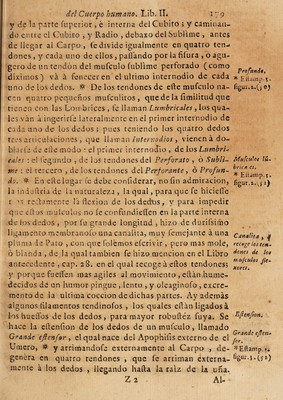 del Cuerpo humano. Lib. II. 179
y de la parte superior, è interna del Cubito; y caminan-
do entre el Cubito, y Radio, debaxo del Sublime, antes
de llegar al Carpo, se divide igualmente en quatro ten-
dones, y cada uno de ellos, passando por la fisura, o agu-
gero de un tendon del musculo sublime perforado (como
diximos) và à fenecer en el ultimo internodio de cada
uno de los dedos. * De los tendones de este musculo na-
cen quatro pequeños musculitos, que de la similitud que
tienen con las Lombrices, se llaman Lumbricales, los qua-
les vàn à ingerirse lateralmente en el primer internodio de
cada uno de los dedos; pues teniendo los quatro dedos
tres articulaciones, que llaman Internodios, vienen à do-
blarse de este modo: el primer internodio, de los Lumbri-
cales: el segundo, de los tendones del Perforato, ò Subli-
me: el tercero, de los tendones del Perforante, ò Profun-
do. * En este lugar se debe considerar, no sin admiracion,
la industria de la naturaleza, la qual, para que se hiciesse
mas rectamente la flexion de los dedos, y para impedir
que estos musculos no se confundiessen en la parte interna
de los dedos, por su grande longitud, hizo de durissimo
ligamento membranoso una canalita, muy semejante à una
pluma de Pato, con que solèmos escrivir, pero mas mole,
ò blanda, de la qual tambien se hizo mencion en el Libro
antecedente, cap. 28. en el qual recoge à estos tendones:
y porque fuessen mas agiles al movimiento, estàn hume-
decidos de un humor pingue, lento, y oleaginoso, excre-
mento de la ultima coccion de dichas partes. Ay además
algunos filamentos tendinosos, los quales estàn ligados à
los huessos de los dedos, para mayor robustèz suya. Se
hace la estension de los dedos de un musculo, llamado
Grande estensor, el qual nace del Apophisis externo de el
Umero, * y arrimandose externamente al Carpo, de-
genera en quatro tendones, que se arriman externa-
mente à los dedos, llegando hasta la raìz de la uña.
Z 2 Al-
Profundo.
* Estamp. 1.
figur. 2. (50)
Musculos lū-
bricales.
* Estamp. 1.
figur. 2. (51)
Canalita, q̄
recoge los ten-
dones de los
musculos fle-
xores.
Estension.
Grande esten-
sor.
* Estamp. 1.
figur. 1. (52)